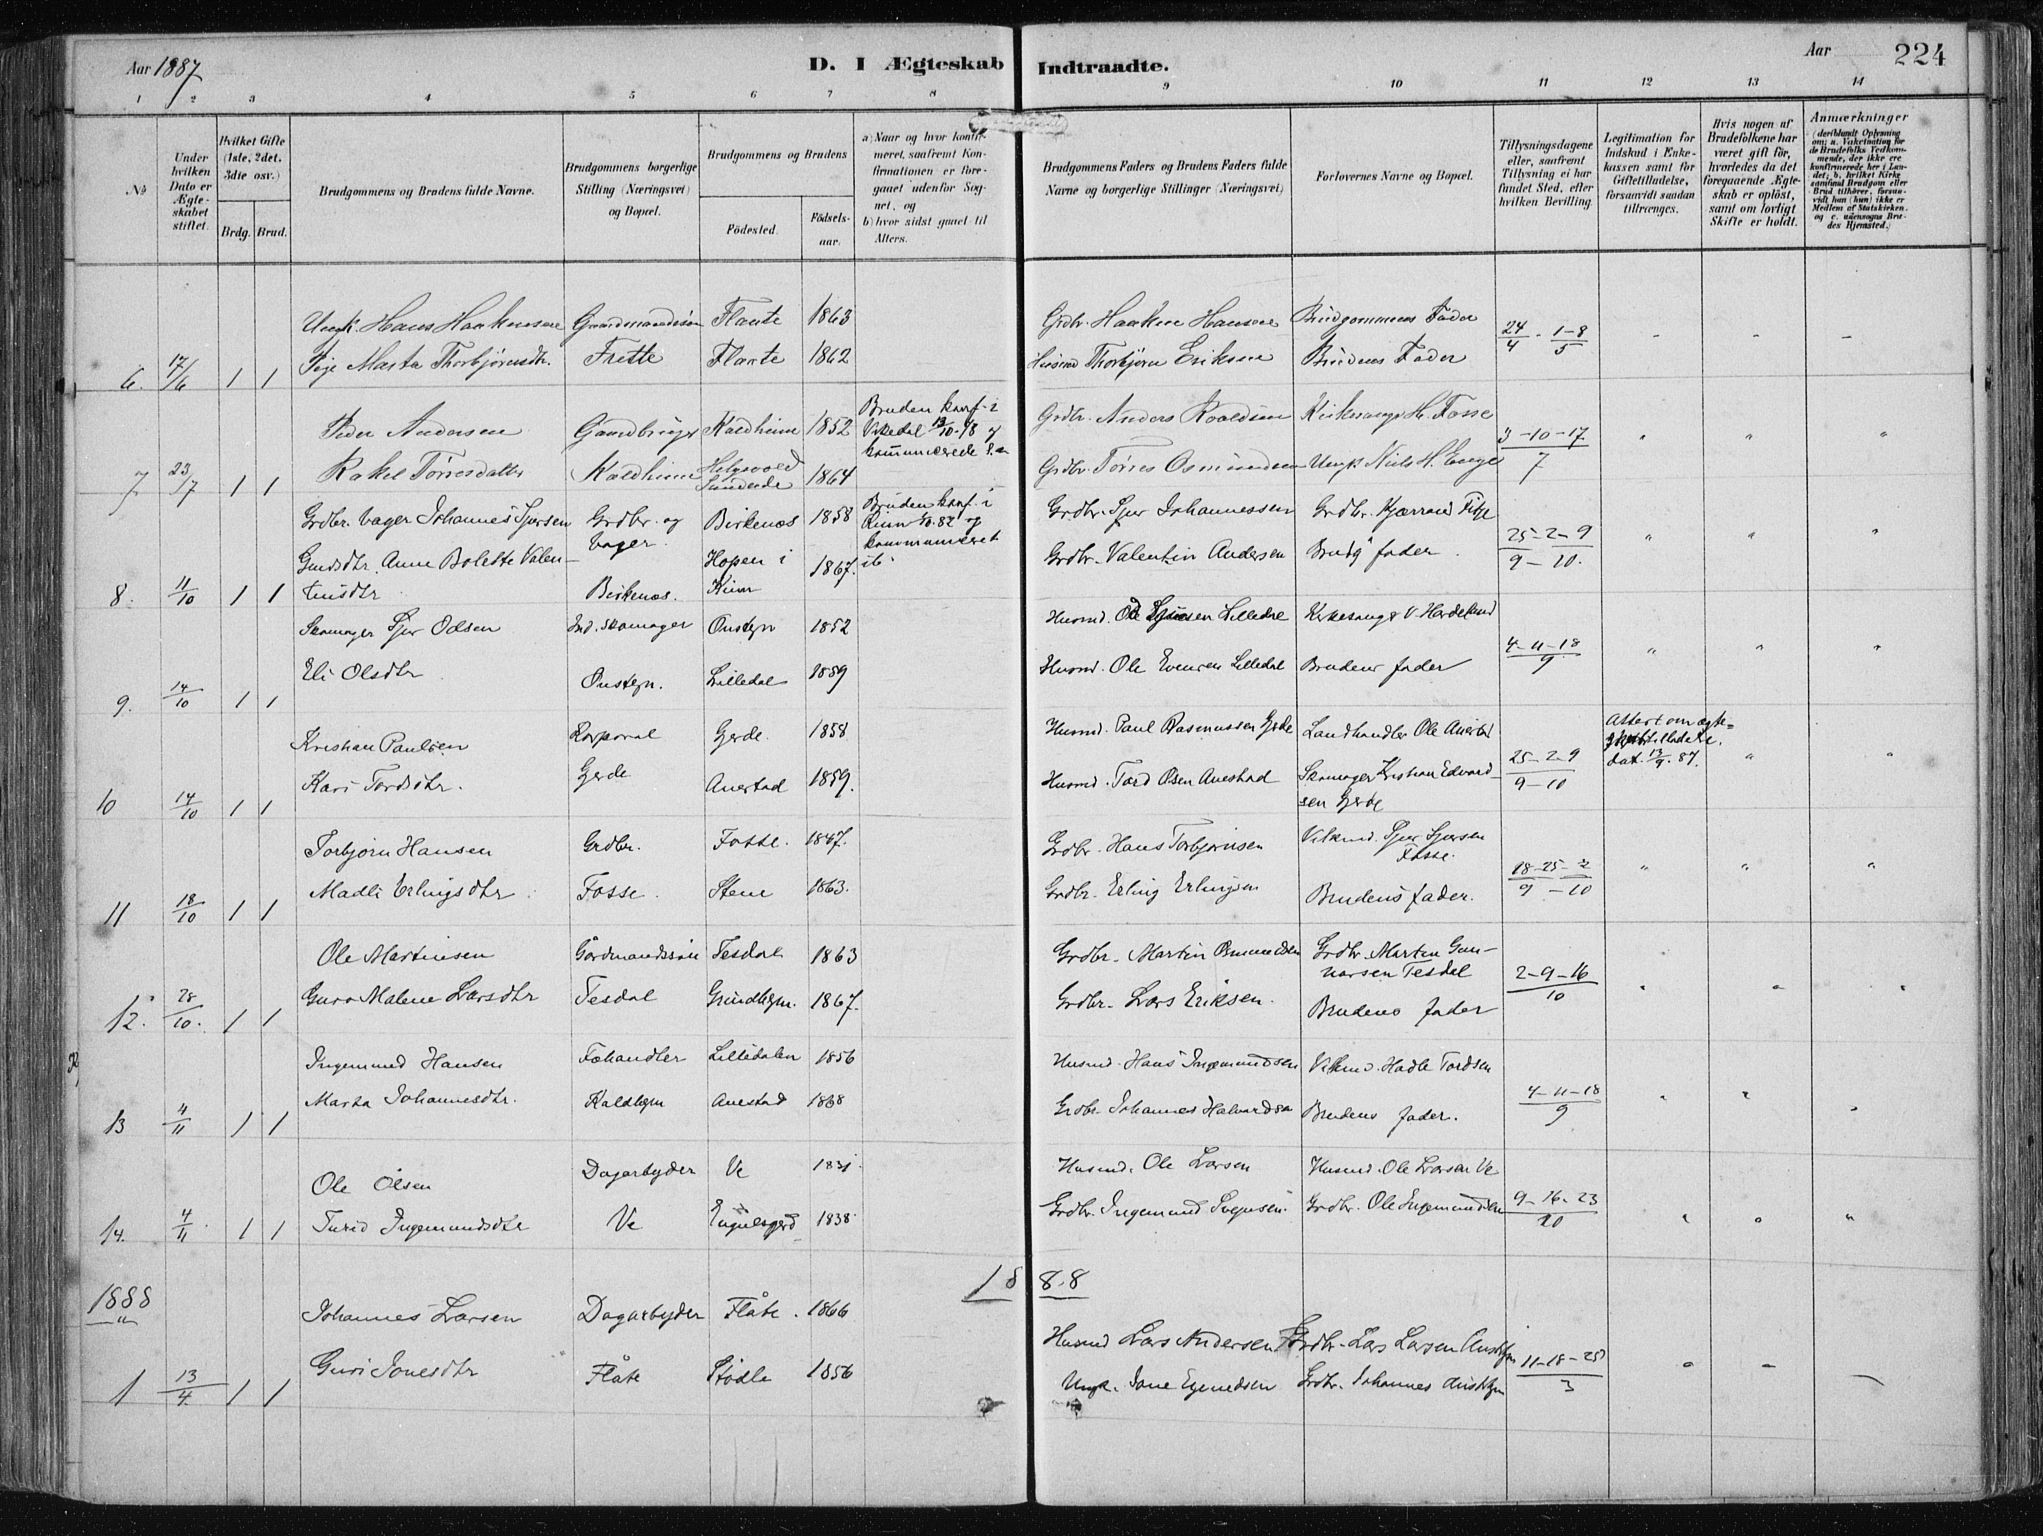 Aar 1887
D. I Ægteskab Indtraadte.
Aar
224
1 2 3 4 5 6 7 8 9 10 11 12 13 14
No
Under hvilken Dato er Ægteskabet stiftet.
Hvilket Gifte (1ste, 2det, 3die osv.)
Brdg. Brud.
Brudgommens og Brudens fulde Navne.
Brudgommens borgerlige Stilling (Næringsvei) og Bopæl.
Brudgommens og Brudens
Fødested.
Fødselsaar.
a) Naar og hvor konfirmeret, saafremt Konfirmationen er foregaaet udenfor Sognet, og
b) hvor sidst gaaet til Alters.
Brudgommens Faders og Brudens Faders fulde Navne og borgerlige Stillinger (Næringsvei)
Forlovernes Navne og Bopæl.
Tillysningsdagene eller, saafremt Tillysning ei har fundet Sted, efter hvilken Bevilling.
Legitimation for Indskud i Enkekassen samt for Giftetilladelse, forsaavidt saadan tiltrænges.
Hvis nogen af Brudefolkene har været gift før, hvorledes da det foregaaende Ægteskab er opløst, samt om lovligt Skifte er holdt.
Anmærkninger
(deriblandt Oplysning om: a. Vakcination for de Brudefolks Vedkommende, der ikke ere konfirmerede her i Landet; b. hvilket Kirkesamfund Brudgom eller Brud tilhører, forsaavidt han (hun) ikke er Medlem af Statskirken, og c. udensogns Brudes Hjemsted.)
Ungk. Hans Haakensen Gaardmandssøn Flaate 1863 Grdbr. Haaken Hansen Brudgommens Fader 24/4 - 1-8/5
6. 17/6 1 1 Pige Marta Thorbjørnsdtr. Frette Flaate 1862 Husmd Thorbjørn Eriksen Brudens Fader
Peder Andersen Gaardbruger Kaldheim 1852 Bruden konf. i Vikedal og kommunicerede Grdbr. Anders Roaldsen Kirkesanger H. Fosse 3-10-17/7
7 23/7 1 1 Rakel Tørresdatter Kaldheim 1864 Grdbr. Tørres Osmundsen Ungk. Niels H. Enge
Grdbr. Vager Johannes Sjursen Grdbr. og Vager. Birkenæs 1858 Bruden konf. i Kinn 82 og kommuniceret ib. Grdbr. Sjur Johannessen Grdbr. 25-2-9/9-10.
8. 11/10 1 1 Gmdsdtr. Anne Bolette Valentinsdtr Birkenæs. Hopen i Kinn 1867. Grdbr. Valentin Andersen Brudg fader.
Skomager Sjur Odsen Ind. Skomager Onstgn 1852 Husmd. Lilledal Kirkesanger V. 4-11-18/9
9. 14/10 1 1 Eli Olsdtr Onstegn. Lilledal 1859 Husmd. Ole Evensen Lilledal Brudens fader
Kristian Paulsen Korporal Gjerde. 1858 Husmd. Paul Rasmussen Gjerde Landhandler Ole 25-2-9/9-10 Attest om ægteskabstilladelse. dat. 13/9. 87.
10 14/10 1 1 Kari Tordsdtr. Gjerde Anestad 1859. Husmd. Tord Olsen Anestad Skomager Kristian Edvardsen Gjerde
Torbjørn Hansen Grdbr. Fosse. 1847. Grdbr. Hans Torbjørnsen Vilkmd. Sjur Sjursen Fosse. 18-25-2/9-10
11 18/10 1 1 Madli Erlingsdtr Fosse. Stene 1863. Grdbr. Erling Erlingsen Brudens fader.
Ole Martinsen Gårdmandssøn Tesdal 1863 Grdbr. Martin Osmundsen Grdbr. Marten Gunnarsen Tesdal 2-9-16/10
12. 28/10. 1 1 Guro Malene Larsdtr Tesdal Grindhgm. 1867. Grdbr. Lars Eriksen. Brudens fader
Ingemund Hansen Fæhandler Lilledalen 1856 Husmd. Hans Ingemundsen Vilkmd. Hadle Tordsen 4-11-18/9
13 4/11 1 1 Marta Johannesdtr. Kaldhgm Anestad 1868 Grdbr. Johannes Halvardsen Brudens fader.
Ole Olsen Dagarbyder Ve 1831. Husmd. Ole Larsen Husmd. Ole Larsen Ve 9-16-23/10
14. 4/11. 1 1 Turid Ingemundsdtr Ve 1838. Grdbr. Ingemund Svensen. Grdbr. Ole Ingemundsen
1888
1888
Johannes Larsen Dagarbyder Flåte. 1866 Husmd Lars Andersen Grdbr. Lars Larsen 11-18-25/3
1 13/4. 1 1 Guri Jonesdtr Flåte Stødle 1856 Ungk. Jone Egemedsen Grdbr. Johannes